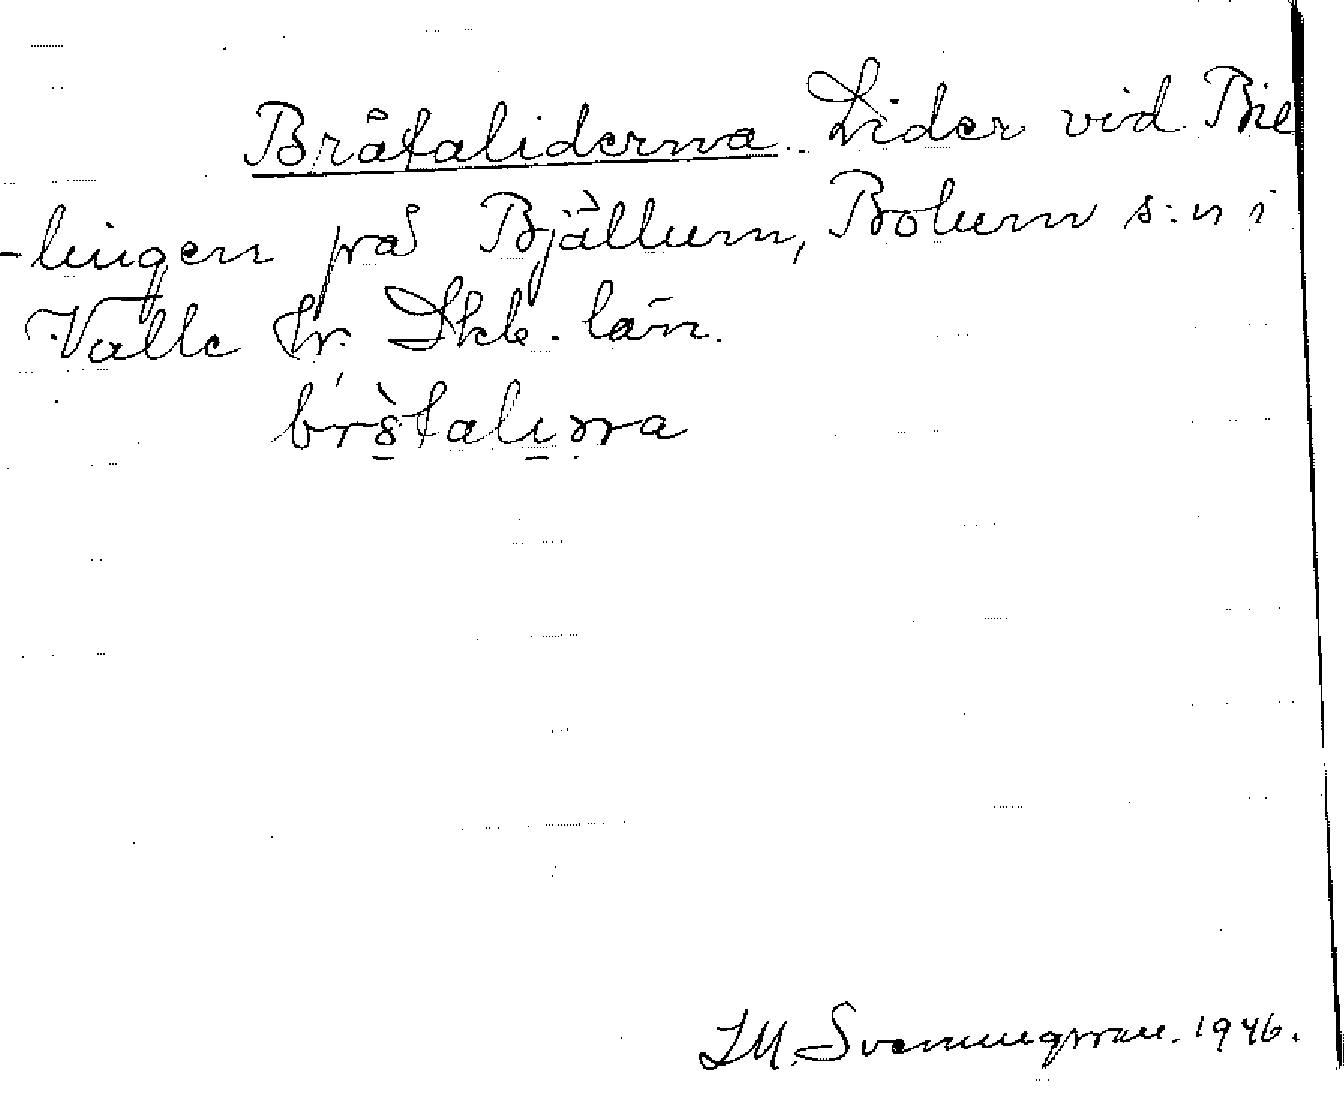 Bråtaliderna. Lider vid Bil
-lingen på Bjällum, Bolum s:n i
Valle hr. Skb. län.
J M. Svenningsson. 1946.